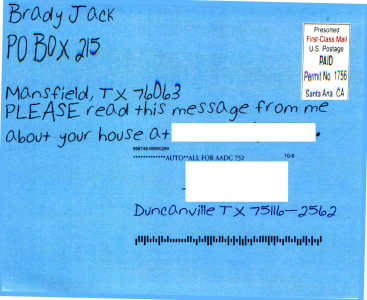 Brady Jack
PO BOX 215
Mansfield, TX 76063
PLEASE read this message from me
about your house at
Presorted
First-Class Mail
U.S. Postage
PAID
Permit No. 1756
Santa Ana CA
*************AUTO**ALL FOR AADC 752
Duncanville TX 75116-2562